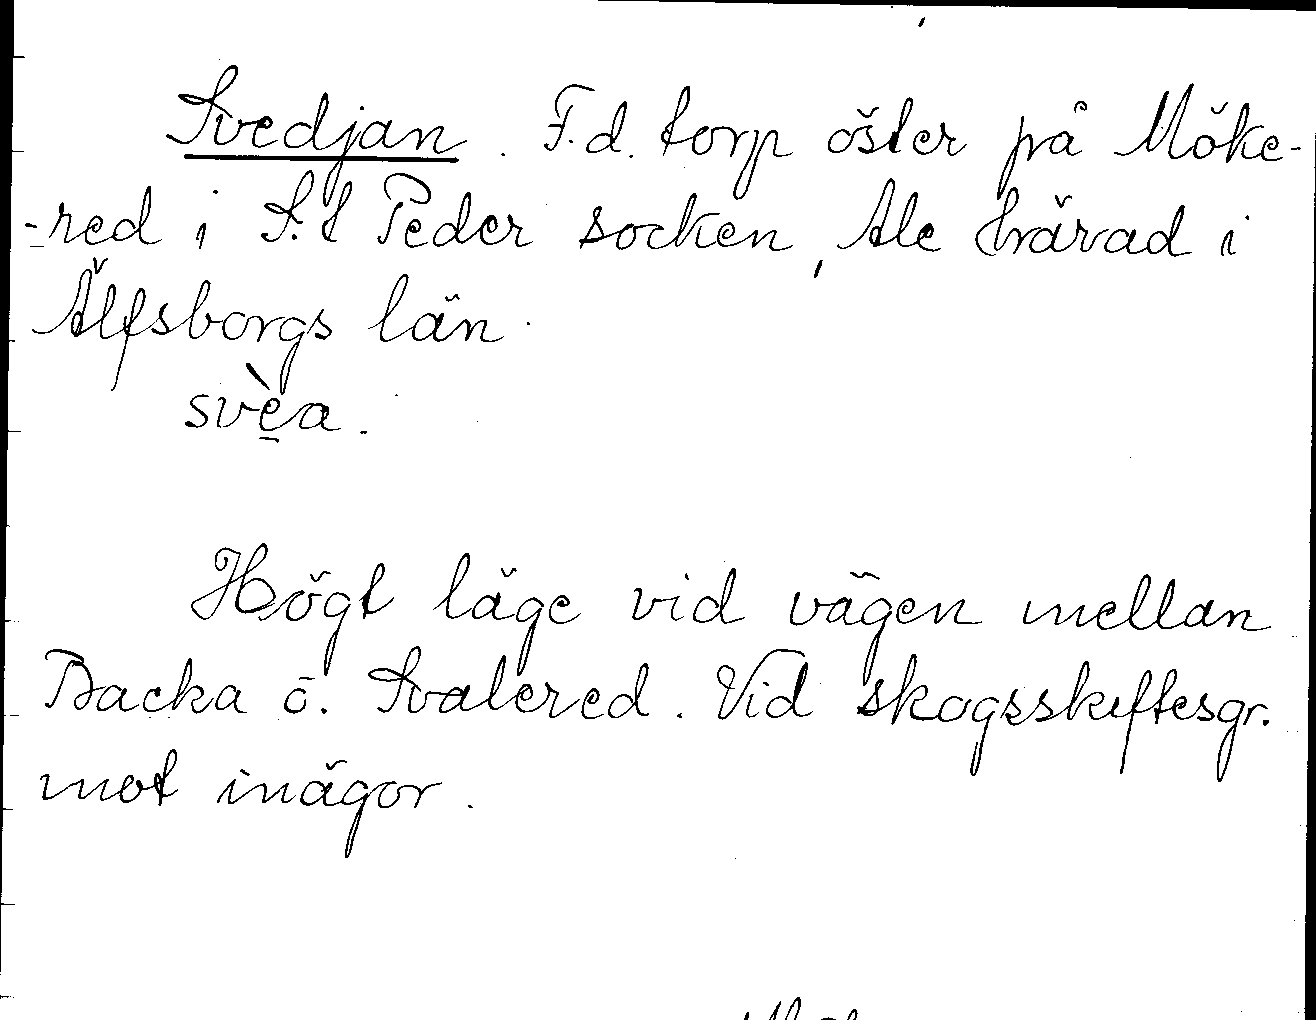 Svedjan. F.d. torp öster på Möke-
-red i S:t Peder socken, Ale härad i
Älfsborgs län.
svèa.
Högt läge vid vägen mellan
Backa o. Svalered. Vid skogsskiftesgr.
mot inägor.